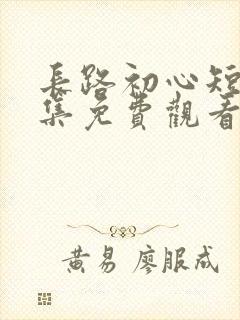 長路初心短
集免費觀看
黃易 廖服成